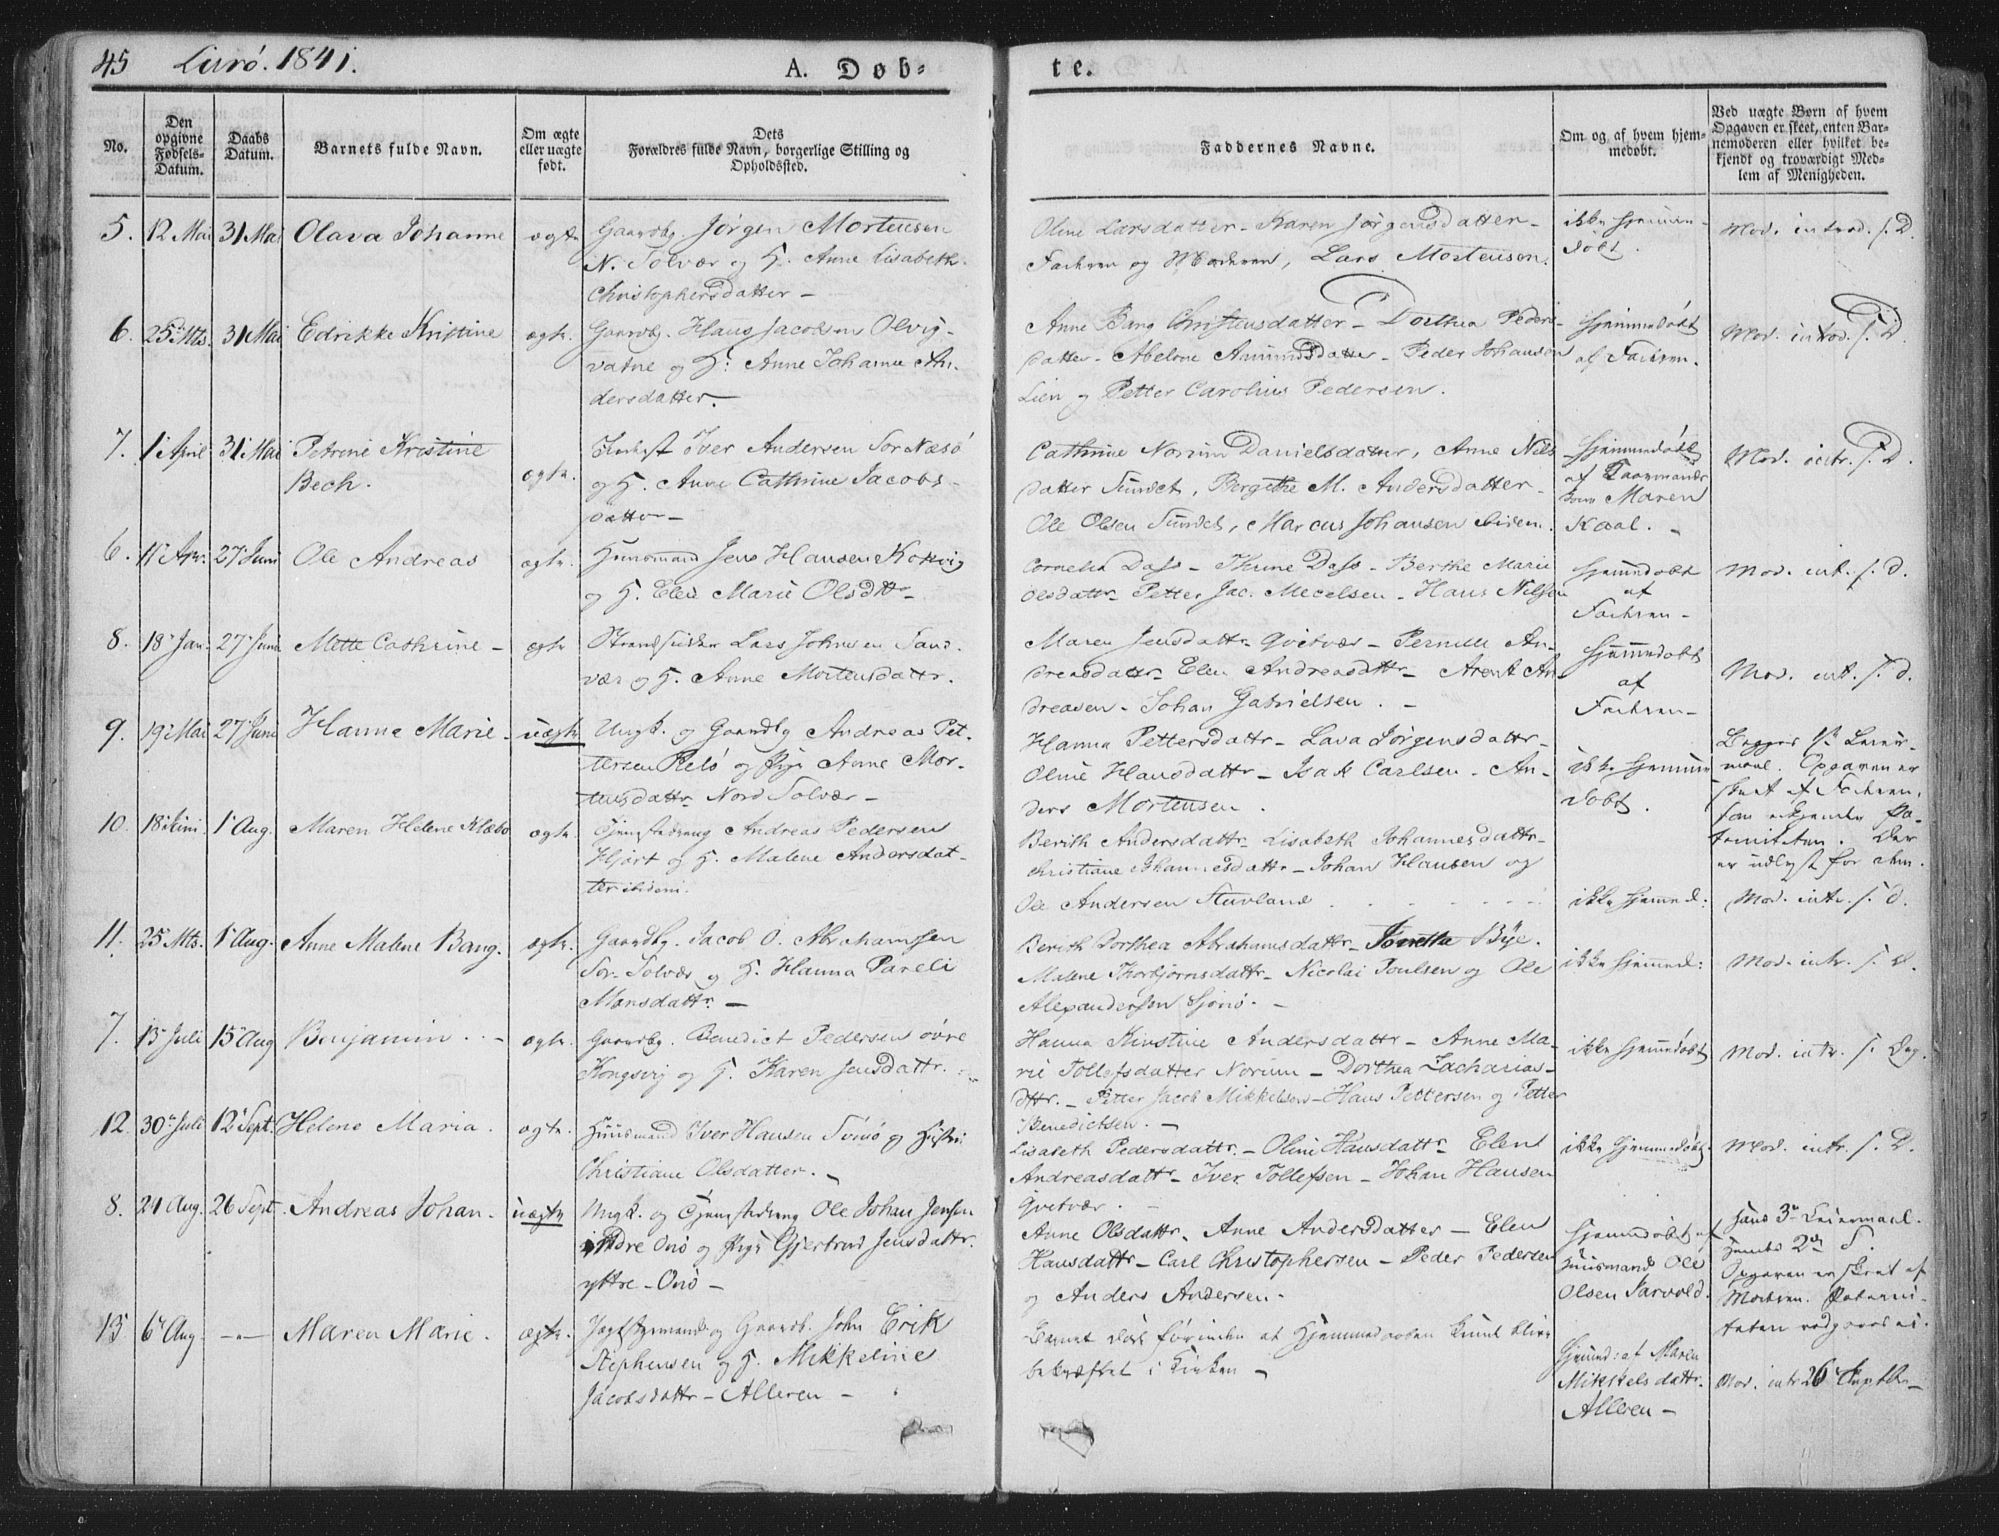 45 Lurö. 1841. A. Døb-
te.
No.
Den opgivne Fødsels-Datum.
Daabs Datum.
Barnets fulde Navn.
Om ægte eller uægte født.
Dets Forældres fulde Navn, borgerlige Stilling og Opholdssted.
Faddernes Navne.
Om og af hvem hjemmedøbt.
Ved uægte Børn af hvem Opgaven er skeet, enten Barnemoderen eller hvilket bekjendt og troværdigt Medlem af Menigheden.
5. 12 Mai 31 Mai Olava Johanne ægte Gaardbg. Jörgen Mortensen
N. Solvær og H. Anne Lisabeth
Christophersdatter –
Oline Larsdatter – Karen Jörgensdatter –
Faderen og Moderen, Lars Mortensen.
ikke hjemme-
döbt.
Mod. introd. s. D.
6. 25 Mts. 31 Mai Edrikke Kristine ægte Gaardbg. Hans Jacobsen Olvig-
vatne og H. Anne Johanne An-
dersdatter.
Anne Bang Christensdatter – Dorthea Peders-
datter – Abelone Amundsdatter – Peder Johansen
Lien og Petter Carolius Pedersen.
Hjemmedöbt
af Faderen.
Mod. introd. s. D.
7. 1 April 31 Mai Petrine Kristine
Bech.
ægte. Inderst Iver Andersen Sör Næsö
og H. Anne Cathrine Jacobs-
datter –
Cathrine Norum Danielsdatter, Anne Nils
datter Sundet, Bergithe M. Andersdatter –
Ole Olsen Sundet, Marcus Johansen ibidem.
Hjemmedöbt
af
Maren
Kaal. –
Mod. intr. s. D.
6. 11 Apr. 27 Juni Ole Andreas ægte. Huusmand Jens Hansen Kokvig
og H. Elen Marie Olsdtt.
Cornelia Dass – Trine Dass – Berthe Marie
Olsdattr. Petter Jac. Mecelsen – Hans Nilsen
Hjemmedöbt
af
Faderen –
Mod. int. s. d.
8. 18 Jan. 27 Juni Mette Cathrine – ægte Strandsidder Lars Johnsen Sand-
vær og H. Anne Mortensdattr.
Maren Jensdattr. Qvitvær – Pernille An-
dreasdattr. Elen Andreasdttr – Arent An-
dreasen – Johan Gabrielsen. –
Hjemmedöbt
af
Faderen –
Mod. int. s. d.
9. 19 Mai 27 Juni Hanna Marie – uægte Ungk. og Gaardbg Andreas Pet-
tersen Selö og Pige Anne Mor-
tensdattr. Nord Solvær –
Hanna Pettersdattr – Lava Jörgensdattr –
Oline Hansdattr – Isak Carlsen – An-
ders Mortensen.
ikke hjemme
döbt.
Begges 1ste Leier-
maal. Opgaven er
skeet af Faderen,
som erkjender Pa-
terniteten. Der
er udlyst for dem.
10. 18 Juni 1 Aug. Maren Helene Klæbo ægte. Tjenestedreng Andreas Pedersen
Hjort og H. Malene Andersdat-
ter ibidem.
Berith Andersdattr – Lisabeth Johannesdattr –
Christiane Johannesdattr – Johan Hansen og
Ole Andersen Stuvland
ikke hjemmed:
Mod. intr. s. d.
11. 25 Mts. 1 Aug. Anne Malene Bang. ægte. Gaardbg. Jacob O. Abrahamsen
Sör-Solvær og H. Hanna Pareli
Monsdattr. –
Berith Dorthea Abrahamsdattr – Jonetta Bye.
Malene Thorbjörnsdattr – Nicolai Poulsen og Ole
Alexandersen Sjonö. –
ikke hjemmed:
Mod. intr. s. D.
7. 13 Juli 15 Aug Benjamin. – ægte. Gaardbg. Benedict Pedersen övre
Kongsvig og H. Karen Jensdattr.
Hanna Kirstine Andersdattr – Anne Ma-
rie Tollefsdatter Norum – Dorthea Zacharias-
dttr. – Petter Jacob Mikkelsen – Hans Pettersen og Petter
Benedictsen. –
ikke hjemmedöbt
Mod. intr. s. Dag.
12. 30 Juli 12 Sept. Helene Maria. ægte. Huusmand Iver Hansen Sonsö og Hustru
Christiane Olsdatter. –
Lisabeth Pedersdattr. – Oline Hansdattr – Elen
Andreasdatt – Iver Tollefsen – Johan Hansen
Qvitvær. –
ikke hjemmedöbt.
Mod. intr. s. D.
8. 24 Aug. 26 Sept. Andreas Johan. uægte Ungk. og Tjenestedreng Ole Johan Jensen
indre Onö og Pige Gjertrud Jensdattr.
yttre – Onö –
Anne Olsdattr. Anne Andersdatter – Elen
Hansdattr – Carl Christophersen – Peder Pedersen
og Anders Andersen –
Hjemmedöbt af
Huusmand Ole
Olsen Sarvold.
Hans 3die Leiermaal.
Hendes 2det
Opgaven er skeet af
Moderen. Paterni-
teten vedgaaes ei.
13 6 Aug. –"– Maren Marie. ægte. og Gaardb. John Erik
Stephensen og H. Mikkeline
Jacobsdattr – Alleren –
Barnet döde förinden at Hjemmedaaben kunde blive
bekræftet i Kirken –
Hjemmed: af Maren
Mikkelsdattr.
Alleren –
Mod. intr 26 Septbr –